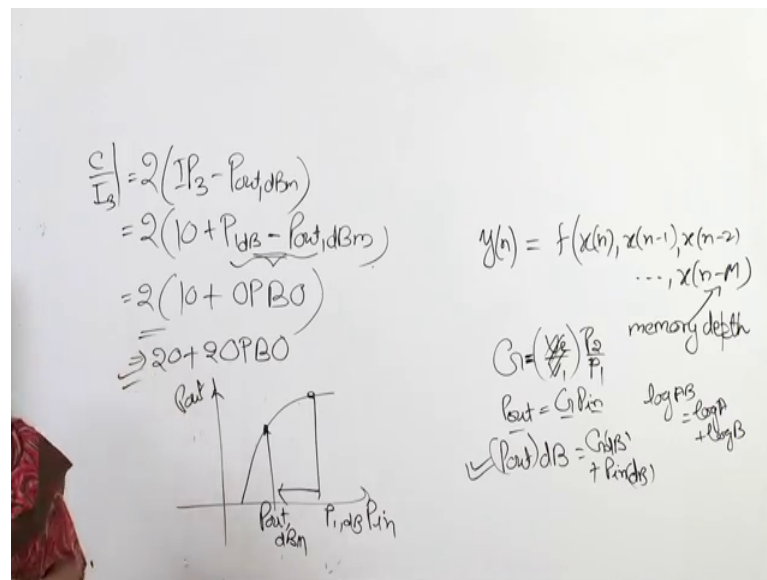 C/I3 | = 2(IP3 - Pout,dBm)
= 2(10 + P1dB - Pout,dBm)
= 2(10 + OPBO)
⇒ 20 + 2OPBO
Pout
Pout,dBm
P1,dB
Pin
y(n) = f(x(n), x(n-1), x(n-2)
..., x(n-M)
memory depth
G = P2/P1
Pout = G Pin
log AB
= log A
+ log B
(Pout)dB = G(dB)
+ Pin(dB)